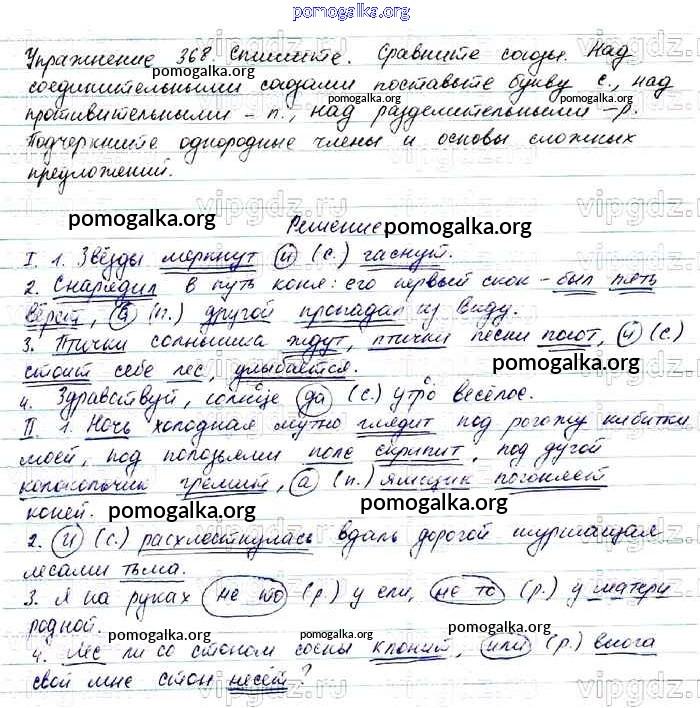 pomogalka.org
Упражнение 368. Спишите. Сравните союзы. Над
соединительными союзами поставьте букву с., над
противительными – п., над разделительными – р.
Подчеркните однородные члены и основы сложных
предложений.
Решение
I. 1. Звёзды меркнут и (с.) гаснут.
2. Снарядил в путь коня: его первый скок – был пять
вёрст, а (п.) другой пропадал из виду.
3. Птички солнышка ждут, птички песни поют, и (с.)
стоит себе лес, улыбается.
4. Здравствуй, солнце да (с.) утро весёлое.
II. 1. Ночь холодная мутно глядит под рогожу кибитки
моей, под полозьями поле скрипит, под дугой
колокольчик гремит, а (п.) ямщик погоняет
коней.
2. И (с.) расхлестнулась вдаль дорогой шуршащая
лесами тьма.
3. Я на руках не то (р.) у ели, не то (р.) у матери
родной.
4. Лес ли со стоном сосны клонит, или (р.) вьюга
свой мне стон несёт?